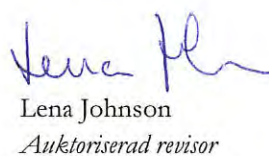 Lena Johnson
Auktoriserad revisor